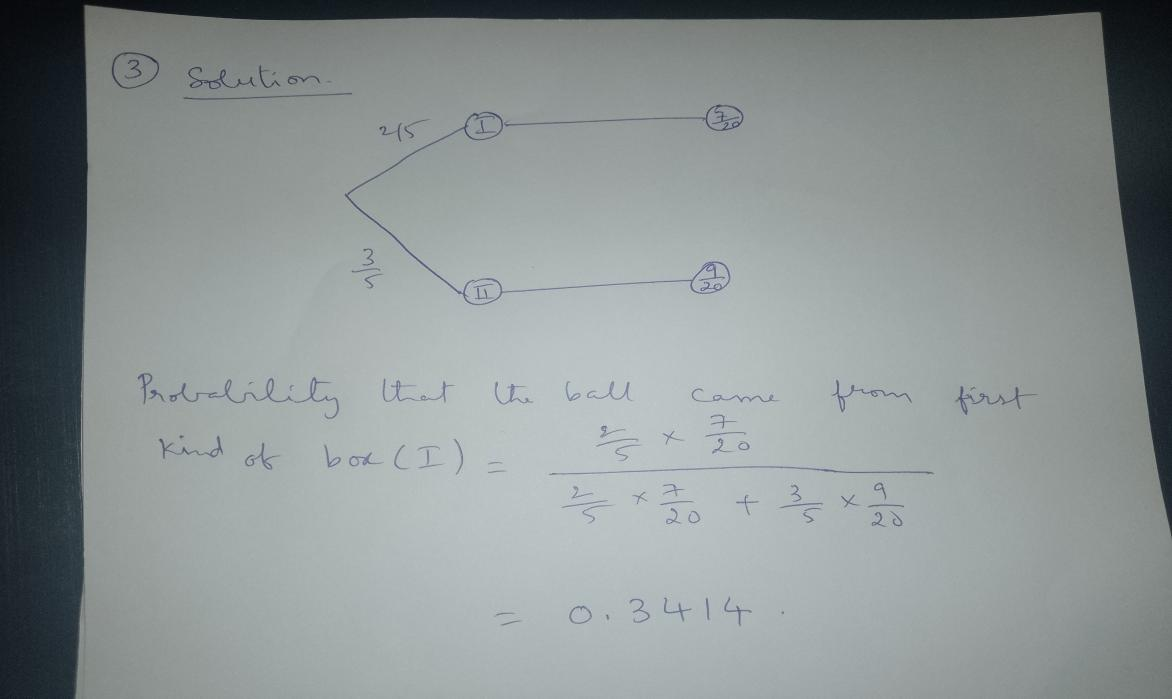 3 Solution.
2/5 I 7/20
3/5 II 9/20
Probability that the ball came from first
kind of box (I) = (2/5 × 7/20) / (2/5 × 7/20 + 3/5 × 9/20)
= 0.3414.